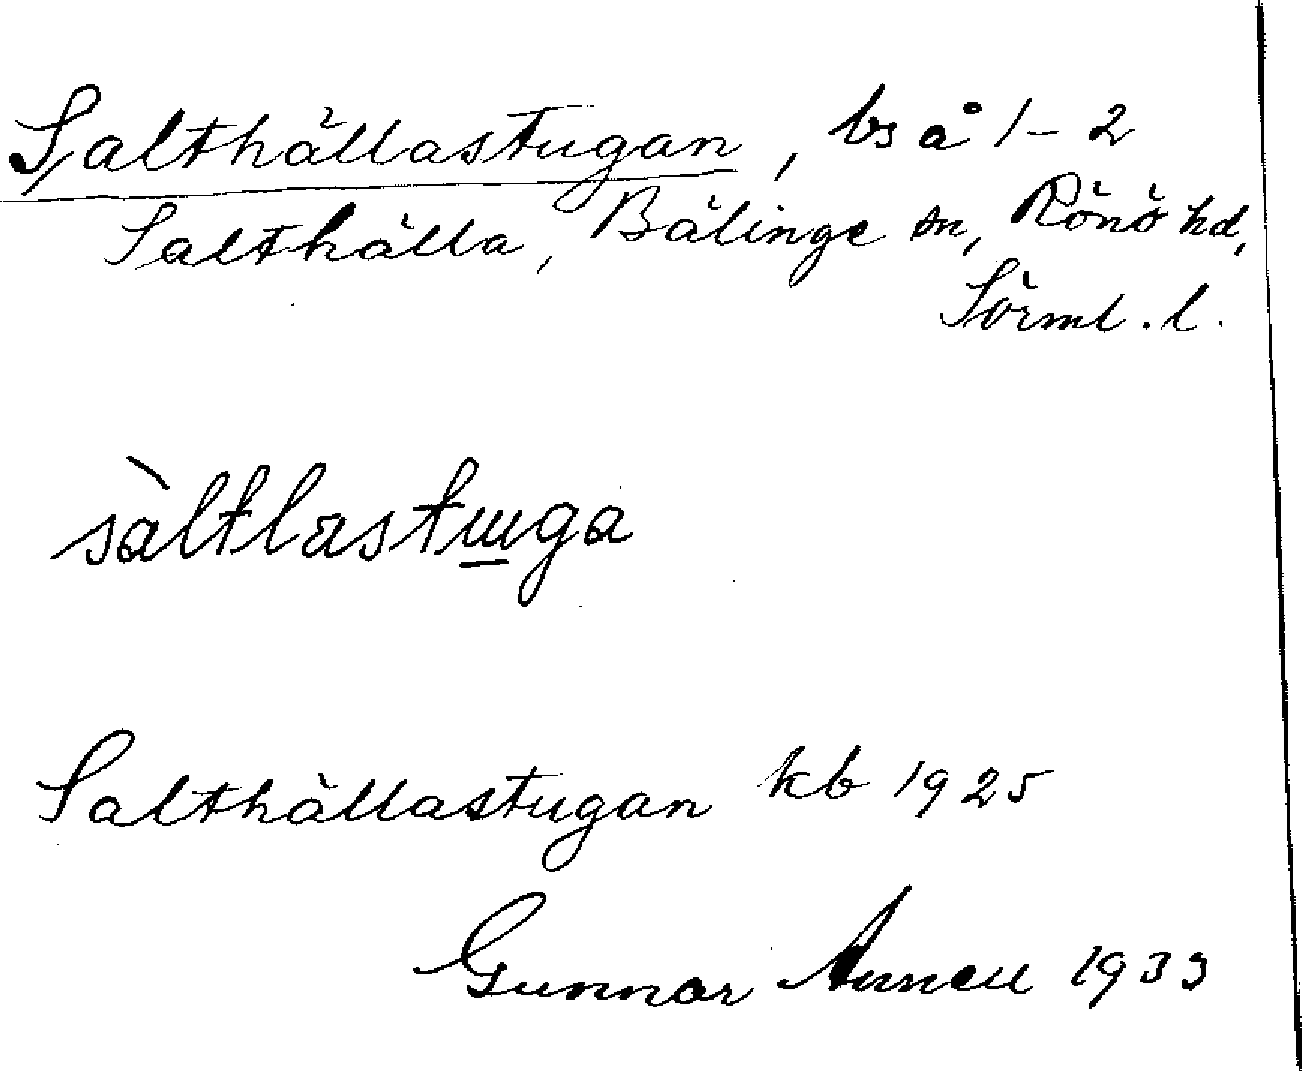 Salthällastugan, bs å 1-2
Salthälla, Bälinge sn, Rönö hd,
Sörml. l.
sàltlastɯga
Salthällastugan kb 1925
Gunnar Annell 1933